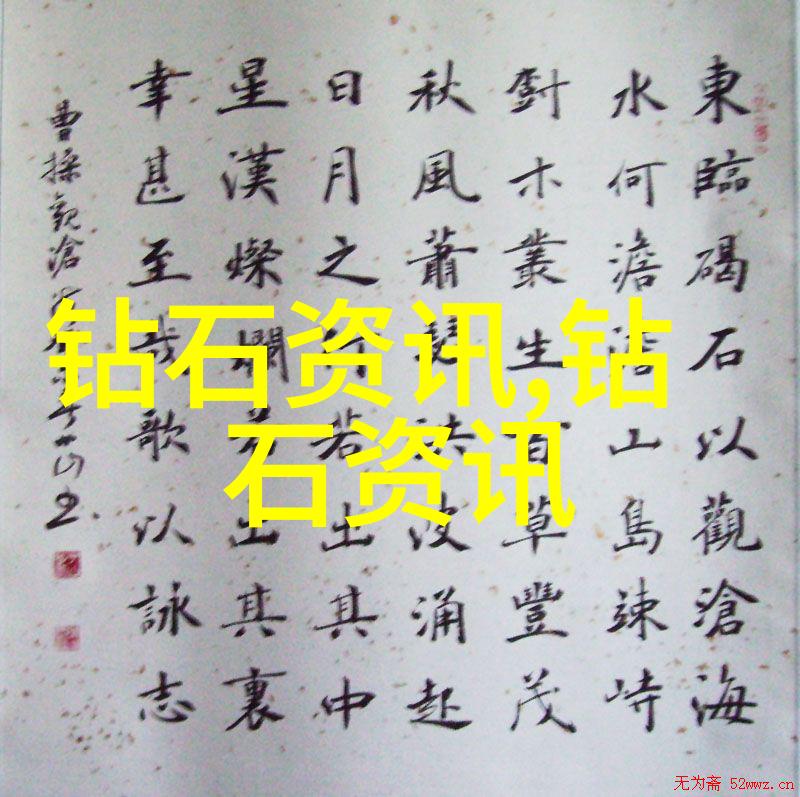 東臨碣石以觀滄海
水何澹澹山島竦峙
樹木叢生百草豐茂
秋風蕭瑟洪波涌起
日月之行若出其中
星漢燦爛若出其裏
幸甚至哉歌以詠志
曹操觀滄海
钻石资讯,钻
石资讯
无为斋 52wwz.cn